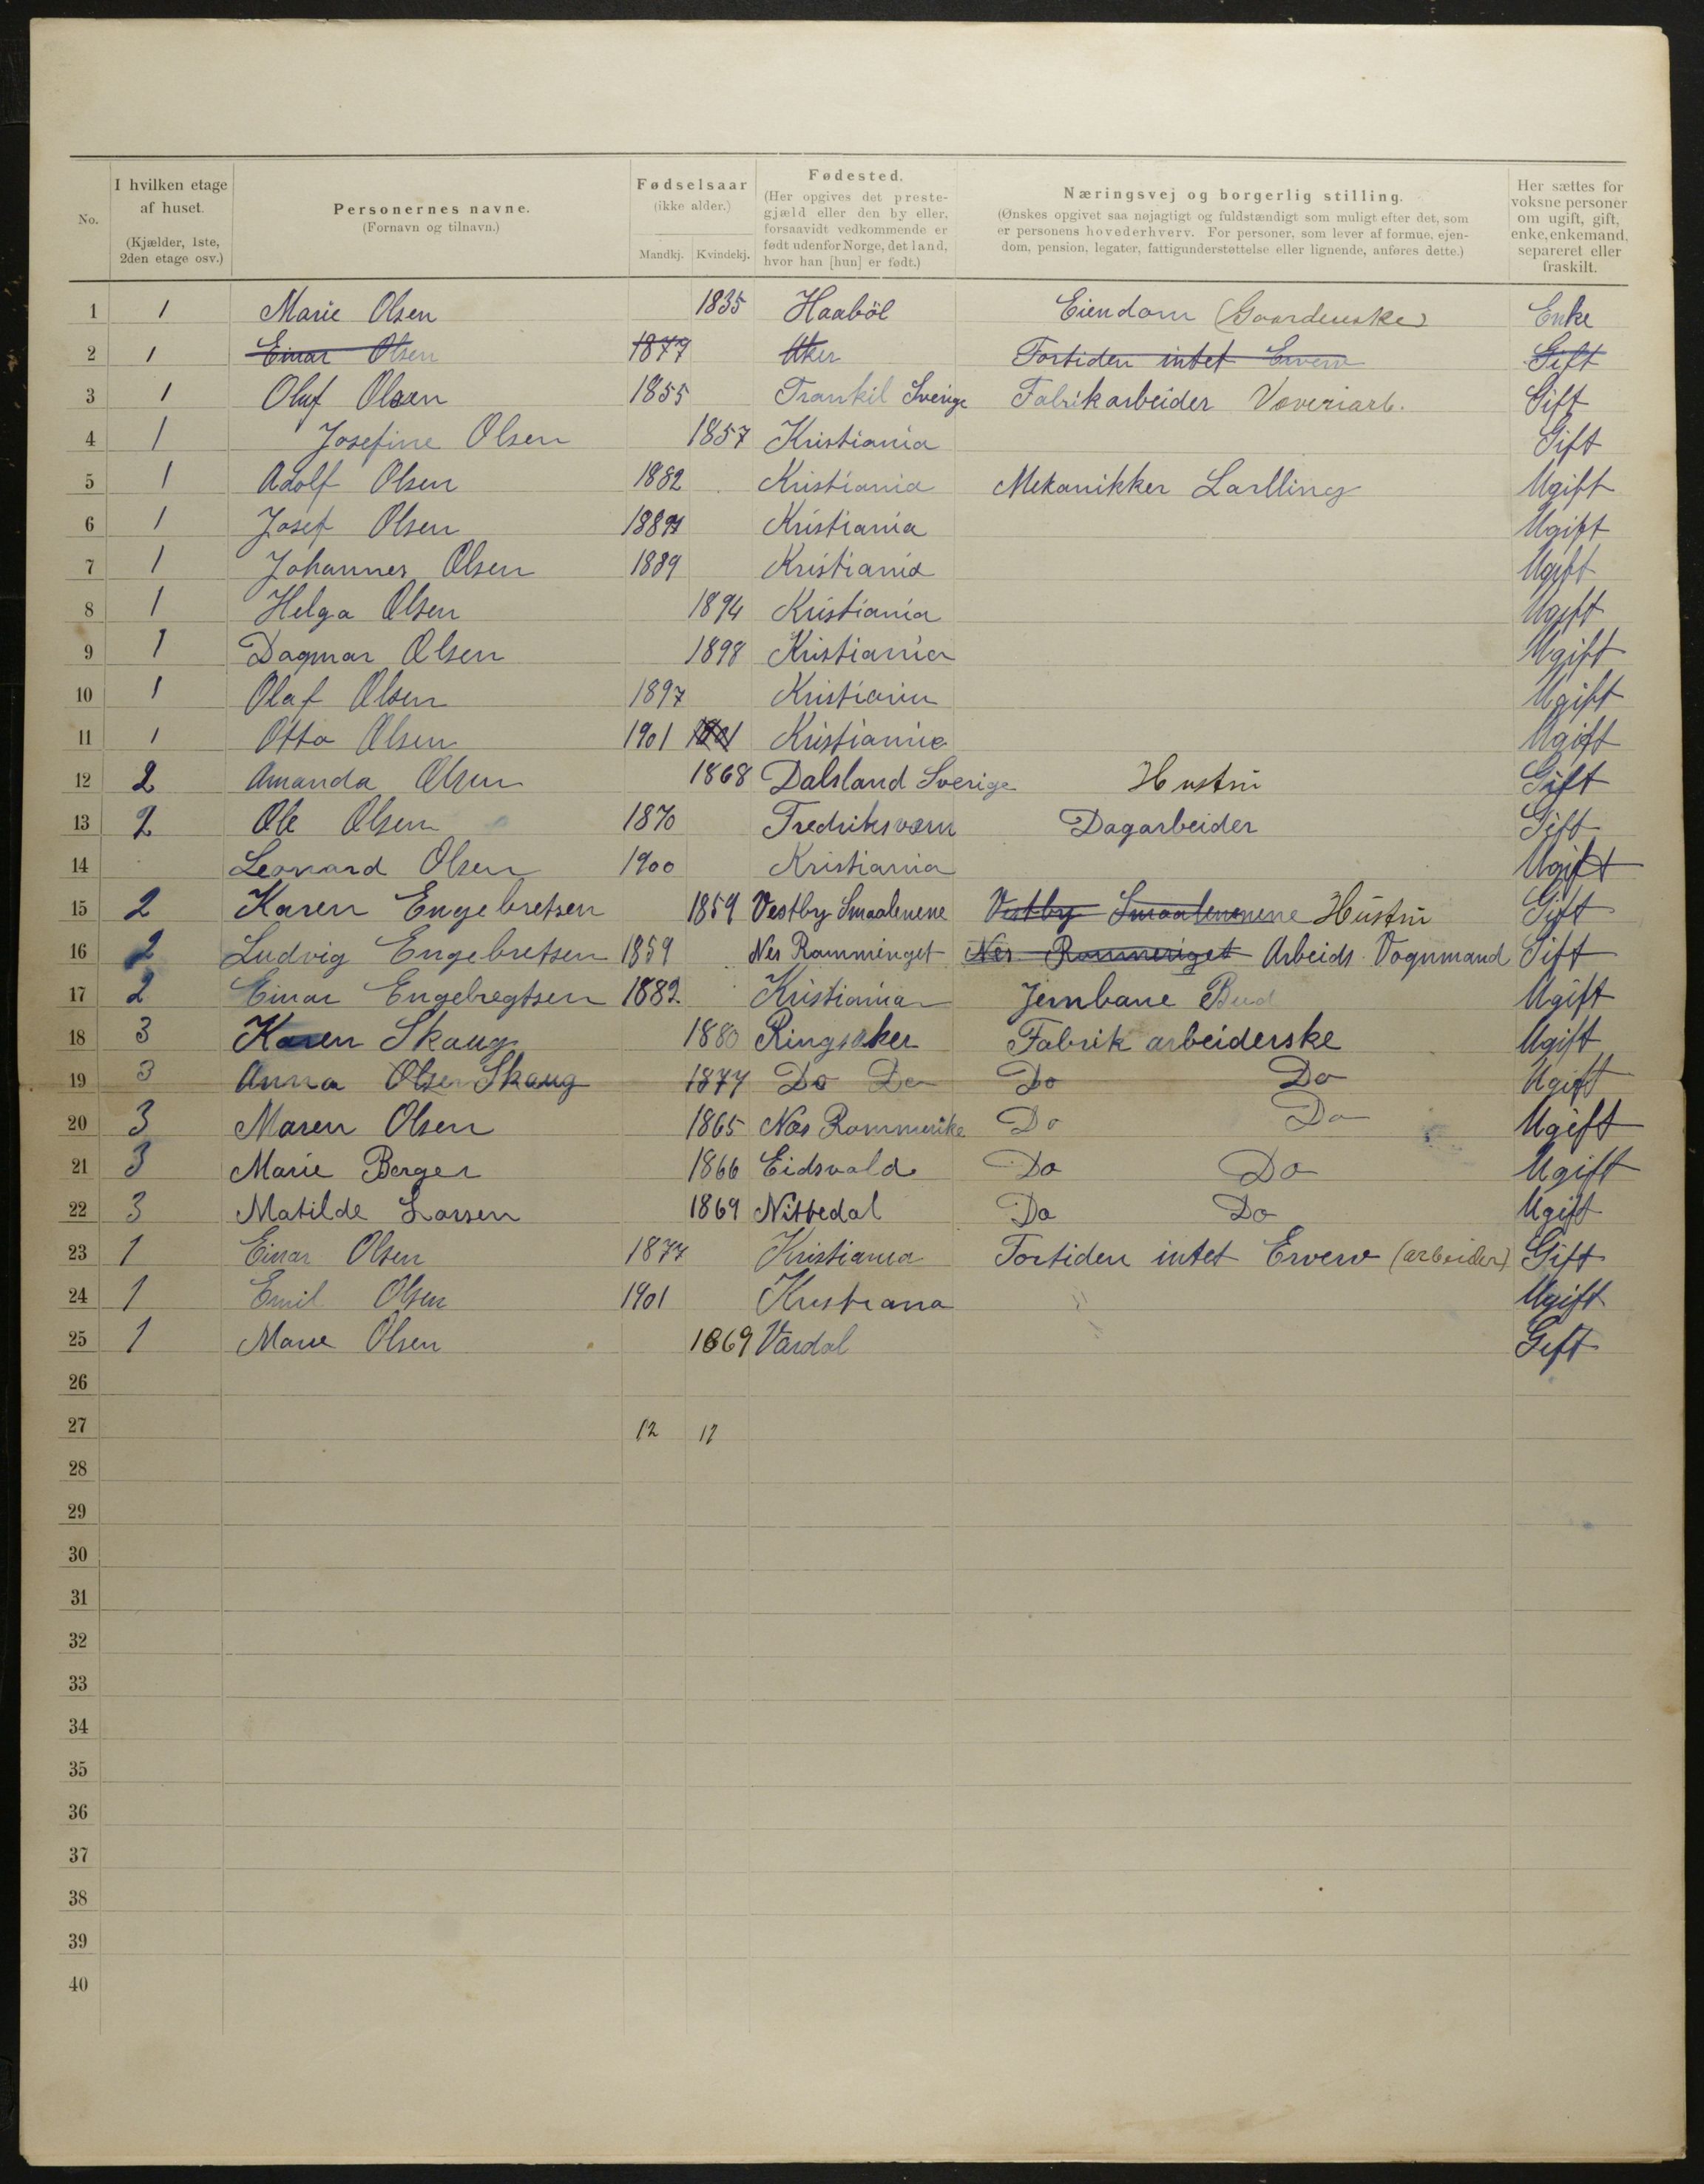 No. | I hvilken etage af huset. (Kjælder, 1ste, 2den etage osv.) | Personernes navne. (Fornavn og tilnavn.) | Fødselsaar (ikke alder.) Mandkj. | Kvindekj. | Fødested. (Her opgives det prestegjæld eller den by eller, forsaavidt vedkommende er født udenfor Norge, det land, hvor han [hun] er født.) | Næringsvej og borgerlig stilling. (Ønskes opgivet saa nøjagtigt og fuldstændigt som muligt efter det, som er personens hovederhverv. For personer, som lever af formue, ejendom, pension, legater, fattigunderstøttelse eller lignende, anføres dette.) | Her sættes for voksne personer om ugift, gift, enke, enkemand, separeret eller fraskilt.
1 1 Marie Olsen 1835 Haaböl Eiendom Enke
2 1 Einar Olsen 1877 Aker Fortiden intet Erverv Gift
3 1 Oluf Olsen 1855 Trankil Sverige Fabrikarbeider Væveriarb. Gift
4 1 Josefine Olsen 1857 Kristiania Gift
5 1 Adolf Olsen 1882 Kristiania Mekanikker Larlling Ugift
6 1 Josef Olsen Kristiania Ugift
7 1 Johannes Olsen 1889 Kristiania Ugift
8 1 Helga Olsen 1894 Kristiania Ugift
9 1 Dagmar Olsen 1898 Kristiania Ugift
10 1 Olaf Olsen 1897 Kristiania Ugift
11 1 Otto Olsen 1901 1901 Kristiania Ugift
12 2 Amanda Olsen 1868 Dalsland Sverige Hustru Gift
13 2 Ole Olsen 1870 Fredriksværn Dagarbeider Gift
14 Leonard Olsen 1900 Kristiania Ugift
15 2 Karen Engebretsen 1859 Vestby Smaalenene Vestby Smaalenenene Hustru Gift
16 2 Ludvig Engebretsen 1859 Nes Rommeriget Nes Rommeriget Arbeids Vognmand Gift
17 2 Einar Engebregtsen 1882 Kristiania Jernbane Bud Ugift
18 3 Karen Skaug 1880 Ringsaker Fabrik arbeiderske Ugift
19 3 Anna Olsen Skaug 1877 Do Do Do Do Ugift
20 3 Maren Olsen 1865 Næs Rommerike Do Do Ugift
21 3 Marie Berger 1866 Eidsvold Do Do Ugift
22 3 Matilde Larsen 1869 Nittedal Do Do Ugift
23 1 Einar Olsen 1877 Kristiania Fortiden intet Erverv (arbeider) Gift
24 1 Emil Olsen 1901 Kristiana " Ugift
25 1 Marie Olsen 1869 Vardal Gift
26
27 12
28
29
30
31
32
33
34
35
36
37
38
39
40